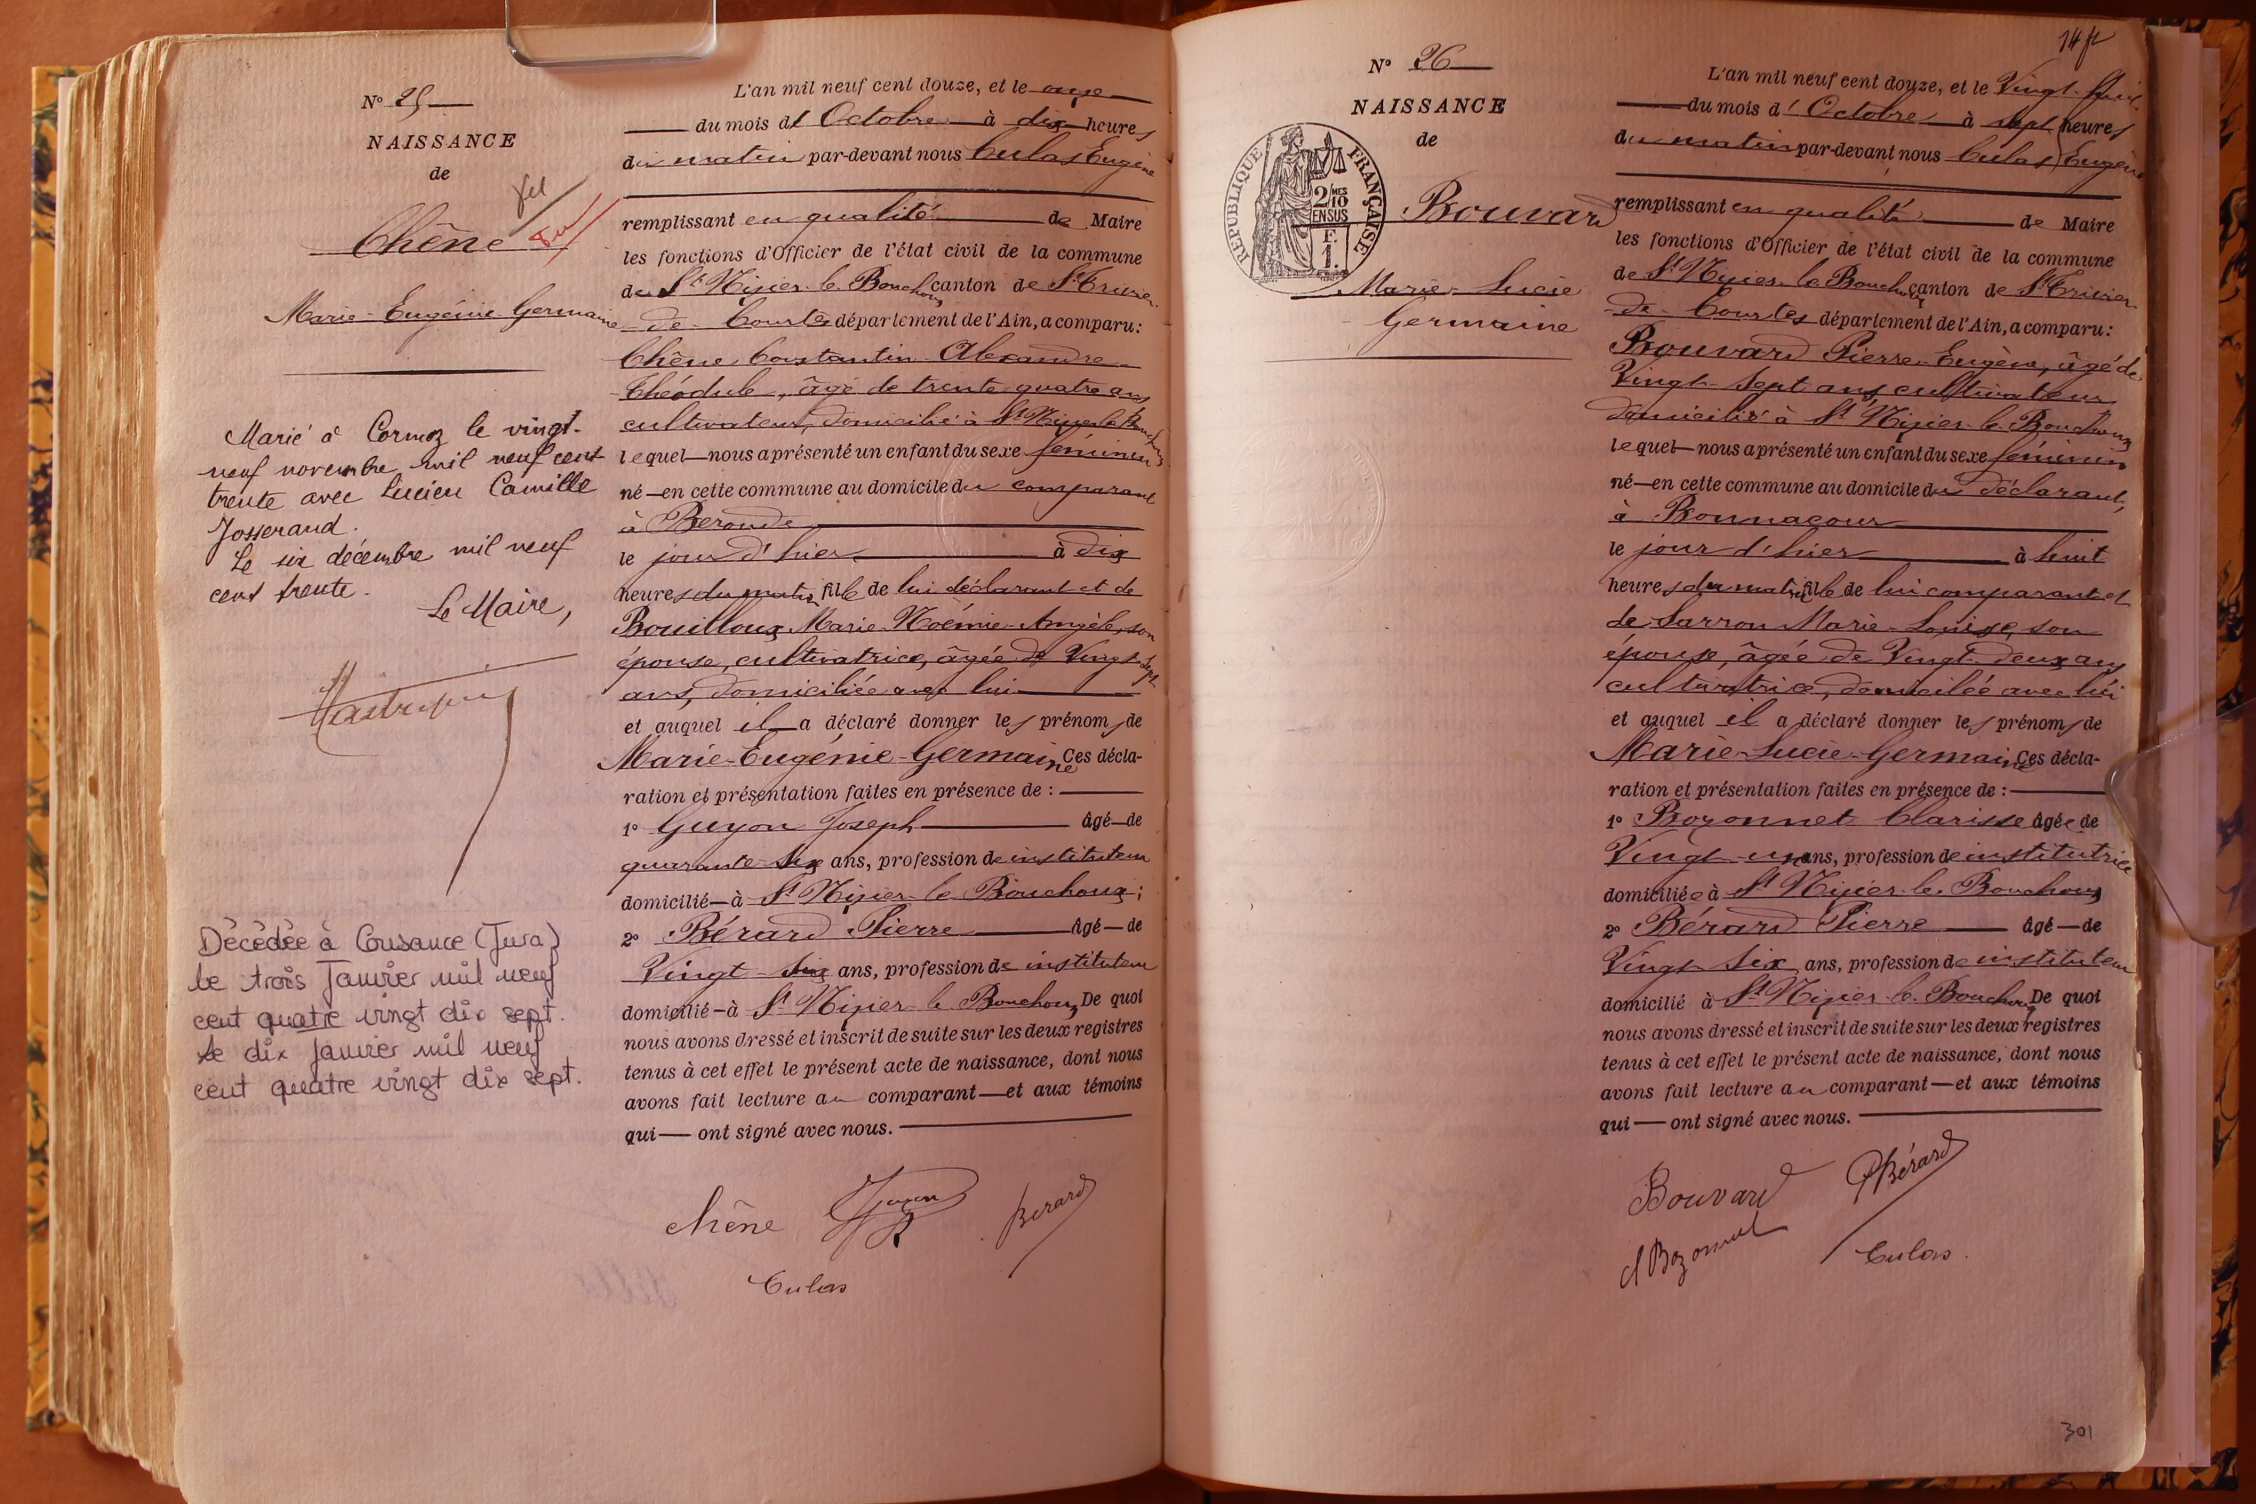 N° 25
NAISSANCE
de
Chêne
Marie-Eugénie Germaine
Marié à Cormoz le vingt-
neuf novembre mil neuf cent
trente avec Lucien Camille
Josserand.
Le six décembre mil neuf
cent trente.
Le Maire,
Décédée à Cousance (Jura)
le trois Janvier mil neuf
cent quatre vingt dix sept.
Le dix Janvier mil neuf
cent quatre vingt dix sept.
L'an mil neuf cent douze, et le onze
du mois d'Octobre à dix heures
du matin par-devant nous Culas Eugène
remplissant en qualité de Maire
les fonctions d'Officier de l'état civil de la commune
de St Nizier-le-Bouchoux canton de St Trivier-
de-Courtes département de l'Ain, a comparu:
Chêne Constantin Alexandre
Théodule, âgé de trente quatre ans
cultivateur, domicilié à St Nizier le Bouchoux
lequel nous a présenté un enfant du sexe féminin
né en cette commune au domicile du comparant
à Beronde
le jour d'hier à dix
heures du matin fille de lui déclarant et de
Bouilloux Marie-Noémie-Angèle, son
épouse, cultivatrice, âgée de Vingt-sept
ans, domiciliée avec lui
et auquel il a déclaré donner les prénoms de
Marie-Eugénie-Germaine Ces décla-
ration et présentation faites en présence de :
1° Guyon Joseph âgé de
quarante-six ans, profession de instituteur
domicilié à St Nizier-le-Bouchoux ;
2° Bérard Pierre âgé de
Vingt-six ans, profession de instituteur
domicilié à St Nizier-le-Bouchoux De quoi
nous avons dressé et inscrit de suite sur les deux registres
tenus à cet effet le présent acte de naissance, dont nous
avons fait lecture au comparant et aux témoins
qui ont signé avec nous.
Chêne Guyon Berard
Culas
14 ft
N° 26
NAISSANCE
de
RÉPUBLIQUE FRANÇAISE
2/10 MES
EN SUS
F.
1.
Bouvard
Marie-Lucie
Germaine
L'an mil neuf cent douze, et le Vingt-huit
du mois d'Octobre à sept heures
du matin par-devant nous Culas Eugène
remplissant en qualité de Maire
les fonctions d'Officier de l'état civil de la commune
de St Nizier-le-Bouchoux canton de St Trivier
de-Courtes département de l'Ain, a comparu:
Bouvard Pierre-Eugène, âgé de
Vingt-sept ans, cultivateur
domicilié à St Nizier-le-Bouchoux
lequel nous a présenté un enfant du sexe féminin
né en cette commune au domicile du déclarant,
à Bonnacour
le jour d'hier à huit
heures du matin fille de lui comparant et
de Sarron Marie-Louise, son
épouse, âgée de Vingt-deux ans
cultivatrice, domiciléé avec lui
et auquel il a déclaré donner les prénoms de
Marie-Lucie-Germaine Ces décla-
ration et présentation faites en présence de :
1° Bozonnet Clarisse âgée de
Vingt-un ans, profession de institutrice
domiciliée à St Nizier-le-Bouchoux
2° Bérard Pierre âgé de
Vingt six ans, profession de instituteur
domicilié à St Nizier-le-Bouchoux De quoi
nous avons dressé et inscrit de suite sur les deux registres
tenus à cet effet le présent acte de naissance, dont nous
avons fait lecture au comparant et aux témoins
qui ont signé avec nous.
Bouvard PBérard
C Bozonnet Culas.
301